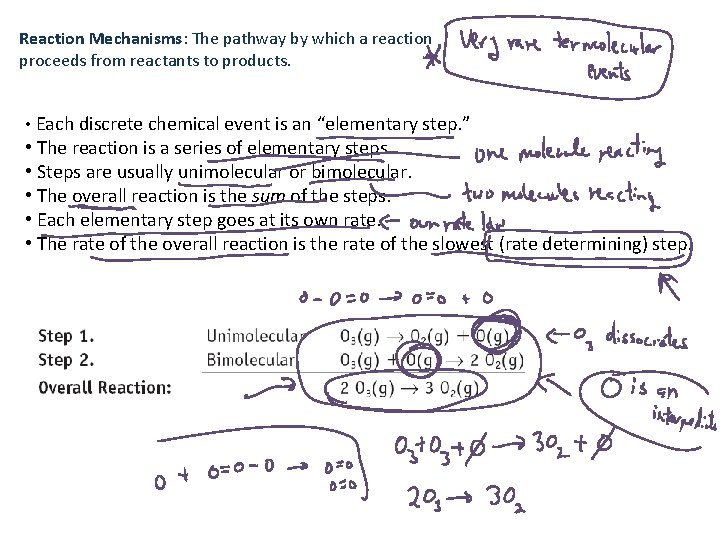 Reaction Mechanisms: The pathway by which a reaction
proceeds from reactants to products.
* Very rare termolecular
events
• Each discrete chemical event is an “elementary step.”
• The reaction is a series of elementary steps.
one molecule reacting
• Steps are usually unimolecular or bimolecular.
• The overall reaction is the sum of the steps.
two molecules reacting
• Each elementary step goes at its own rate.
← own rate law
• The rate of the overall reaction is the rate of the slowest (rate determining) step.
O-O=O → O=O + O
Step 1. Unimolecular O₃(g) → O₂(g) + O(g)
← O₃ dissociates
Step 2. Bimolecular O₃(g) + O(g) → 2 O₂(g)
Overall Reaction: 2 O₃(g) → 3 O₂(g)
O is an
O₃+O₃+O → 3O₂ + O
O + O=O-O → O=O
O=O
2O₃ → 3O₂